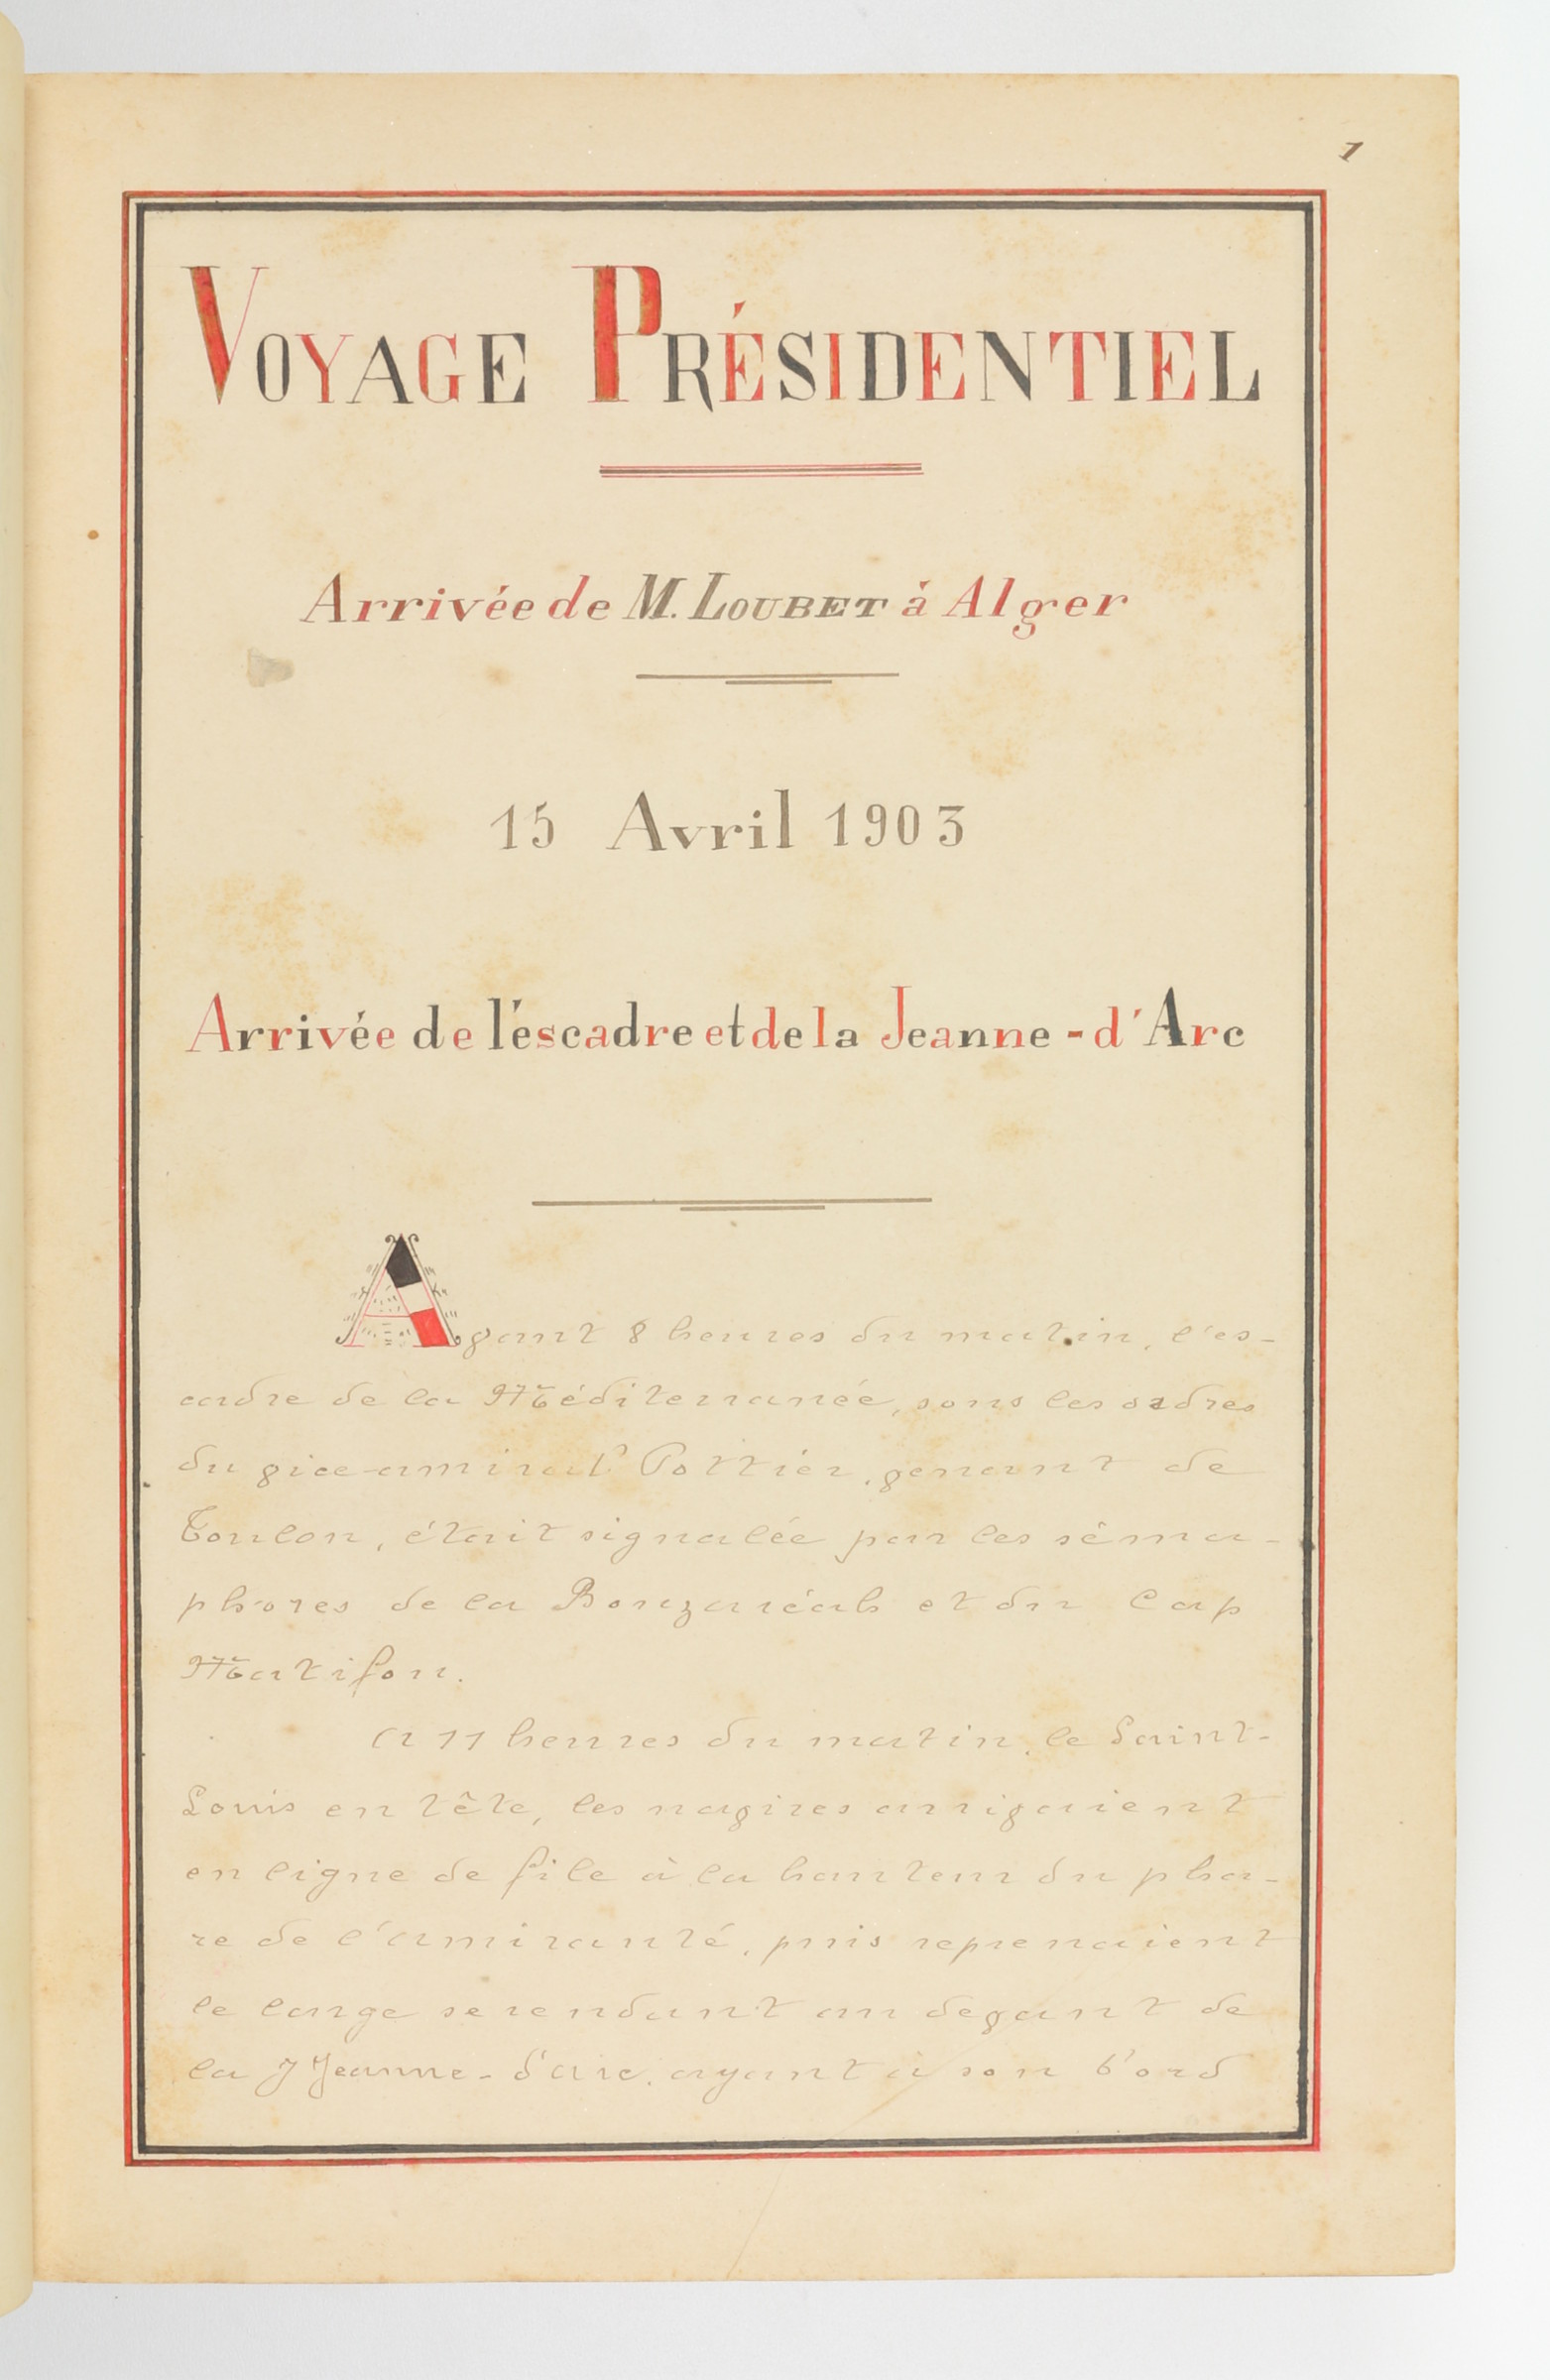 1
VOYAGE PRÉSIDENTIEL
Arrivée de M. LOUBET à Alger
15 Avril 1903
Arrivée de l'éscadre et de la Jeanne-d'Arc
Avant 8 heures du matin, l'es-
cadre de la Méditerranée, sous les ordres
du vice-amiral Pottier, venant de
Toulon, était signalée par les séma-
phores de la Bouzaréah et du Cap
Matifou.
A 11 heures du matin, le Saint-
Louis en tête, les navires arrivaient
en ligne de file à la hauteur du pha-
re de l'amirauté, puis reprenaient
le large se rendant au devant de
la J Jeanne-d'Arc, ayant à son bord